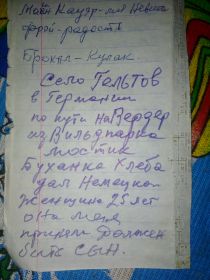 Майн Кауэр-
фрой-радость
Брокгл-Кулак
Село Гельтов
в Германии
по пути на Вердер
из Вильдпарка
мостик
Буханка хлеба
дал Немецкая
женщина 25 лет
она меня
должен
быть сын.